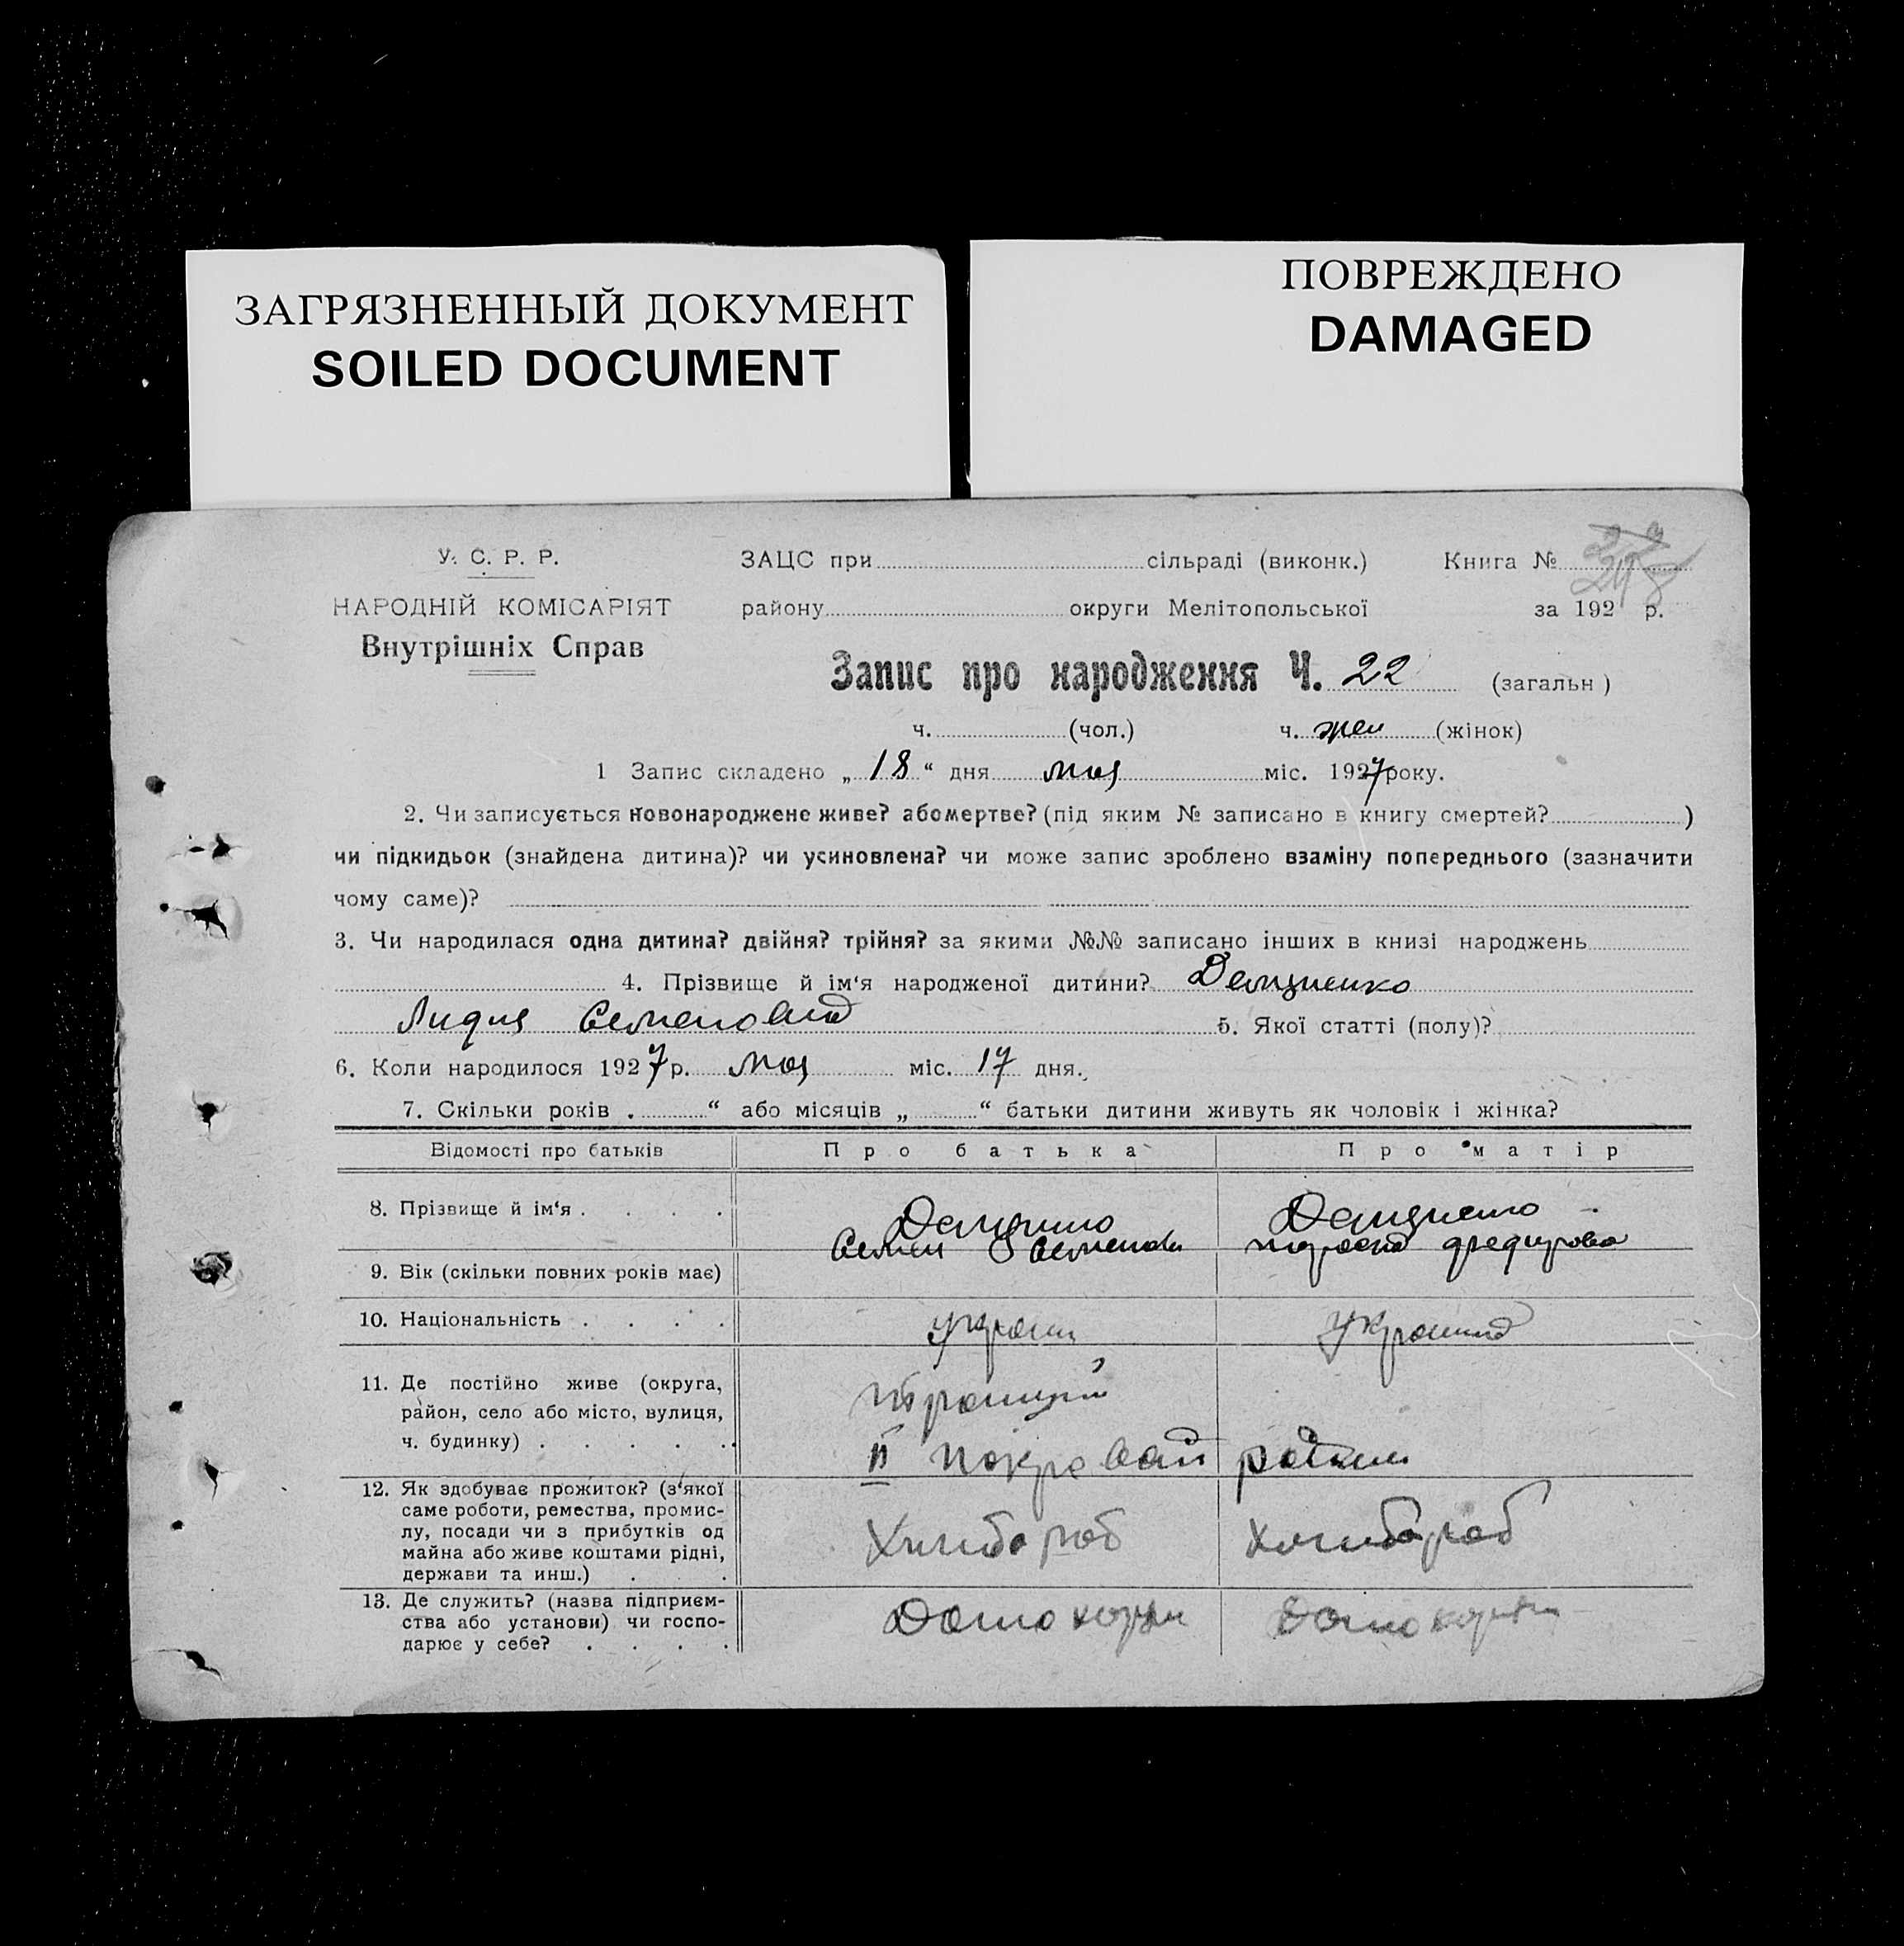 ЗАГРЯЗНЕННЫЙ ДОКУМЕНТ
SOILED DOCUMENT
ПОВРЕЖДЕНО
DAMAGED
У. С. Р. Р.
НАРОДНІЙ КОМІСАРІЯТ
Внутрішніх Справ
ЗАЦС при сільраді (виконк.) Книга №
району округи Мелітопольської за 192 р.
Запис про народження Ч. 22 (загальн)
ч. (чол.) ч. жен (жінок)
1 Запис складено „18“ дня мая міс. 1927 року.
2. Чи записується новонароджене живе? або мертве? (під яким № записано в книгу смертей? )
чи підкидьок (знайдена дитина)? чи усиновлена? чи може запис зроблено взаміну попереднього (зазначити
чому саме)?
3. Чи народилася одна дитина? двійня? трійня? за якими №№ записано інших в книзі народжень
4. Прізвище й ім‘я народженої дитини?
Лидия Семеновна 5. Якої статті (полу)?
6. Коли народилося 1927 р. мая міс. 17 дня.
7. Скільки років „ “ або місяців „ “ батьки дитини живуть як чоловік і жінка?
Відомості про батьків Про батька Про матір
8. Прізвище й ім‘я . . . .
Семен Семенов
9. Вік (скільки повних років має)
10. Національність . . . . украин украинка
11. Де постійно живе (округа,
район, село або місто, вулиця,
ч. будинку) . . . . .
12. Як здобуває прожиток? (з‘якої
саме роботи, ремества, промис-
лу, посади чи з прибутків од
майна або живе коштами рідні,
держави та инш.) . . .
13. Де служить? (назва підприєм-
ства або установи) чи госпо-
дарює у себе? . . . .